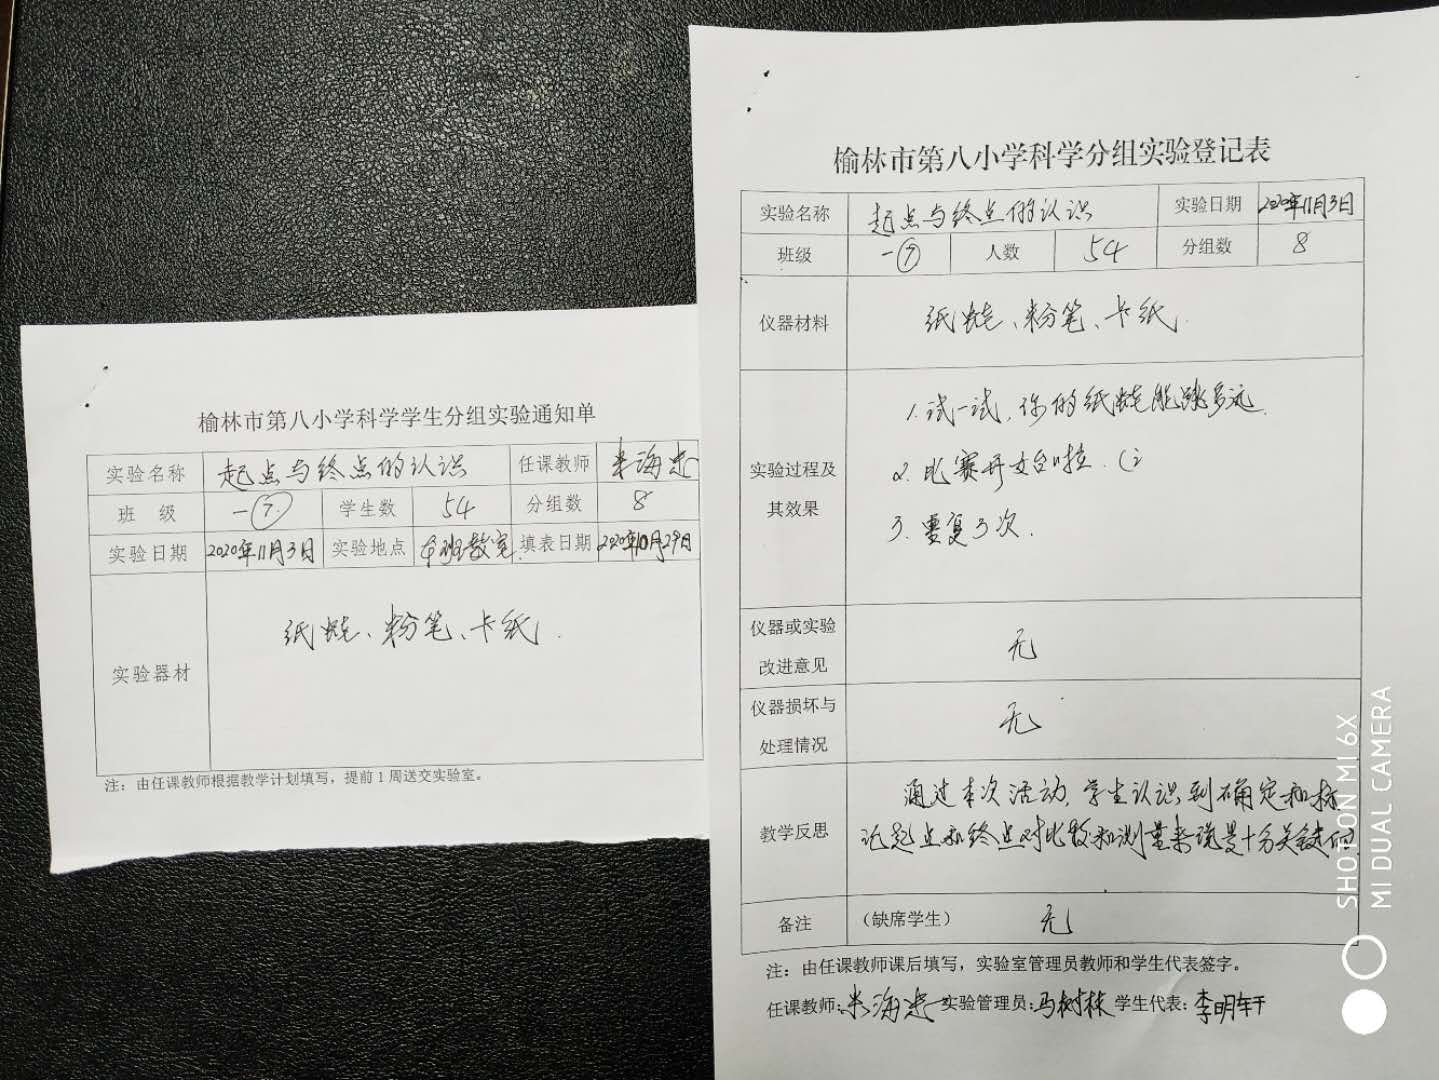 榆林市第八小学科学学生分组实验通知单
实验名称 起点与终点的认识 任课教师 米海忠
班 级 一⑦ 学生数 54 分组数 8
实验日期 2020年11月3日 实验地点 本班教室 填表日期 2020年10月29日
实验器材 纸蛙、粉笔、卡纸.
注：由任课教师根据教学计划填写，提前1周送交实验室。
榆林市第八小学科学分组实验登记表
实验名称 起点与终点的认识 实验日期 2020年11月3日
班级 一⑦ 人数 54 分组数 8
仪器材料 纸蛙、粉笔、卡纸.
实验过程及
其效果
1.试一试,你的纸蛙能跳多远.
2.比赛开始啦.
3.重复3次.
仪器或实验
改进意见
无
仪器损坏与
处理情况
无
教学反思
通过本次活动,学生认识到确定和标
记起点和终点对比较和测量来说是十分关键的
备注 （缺席学生） 无
注：由任课教师课后填写，实验室管理员教师和学生代表签字。
任课教师:米海忠 实验管理员:马树林 学生代表:李明轩
SHOT ON MI 6X
MI DUAL CAMERA